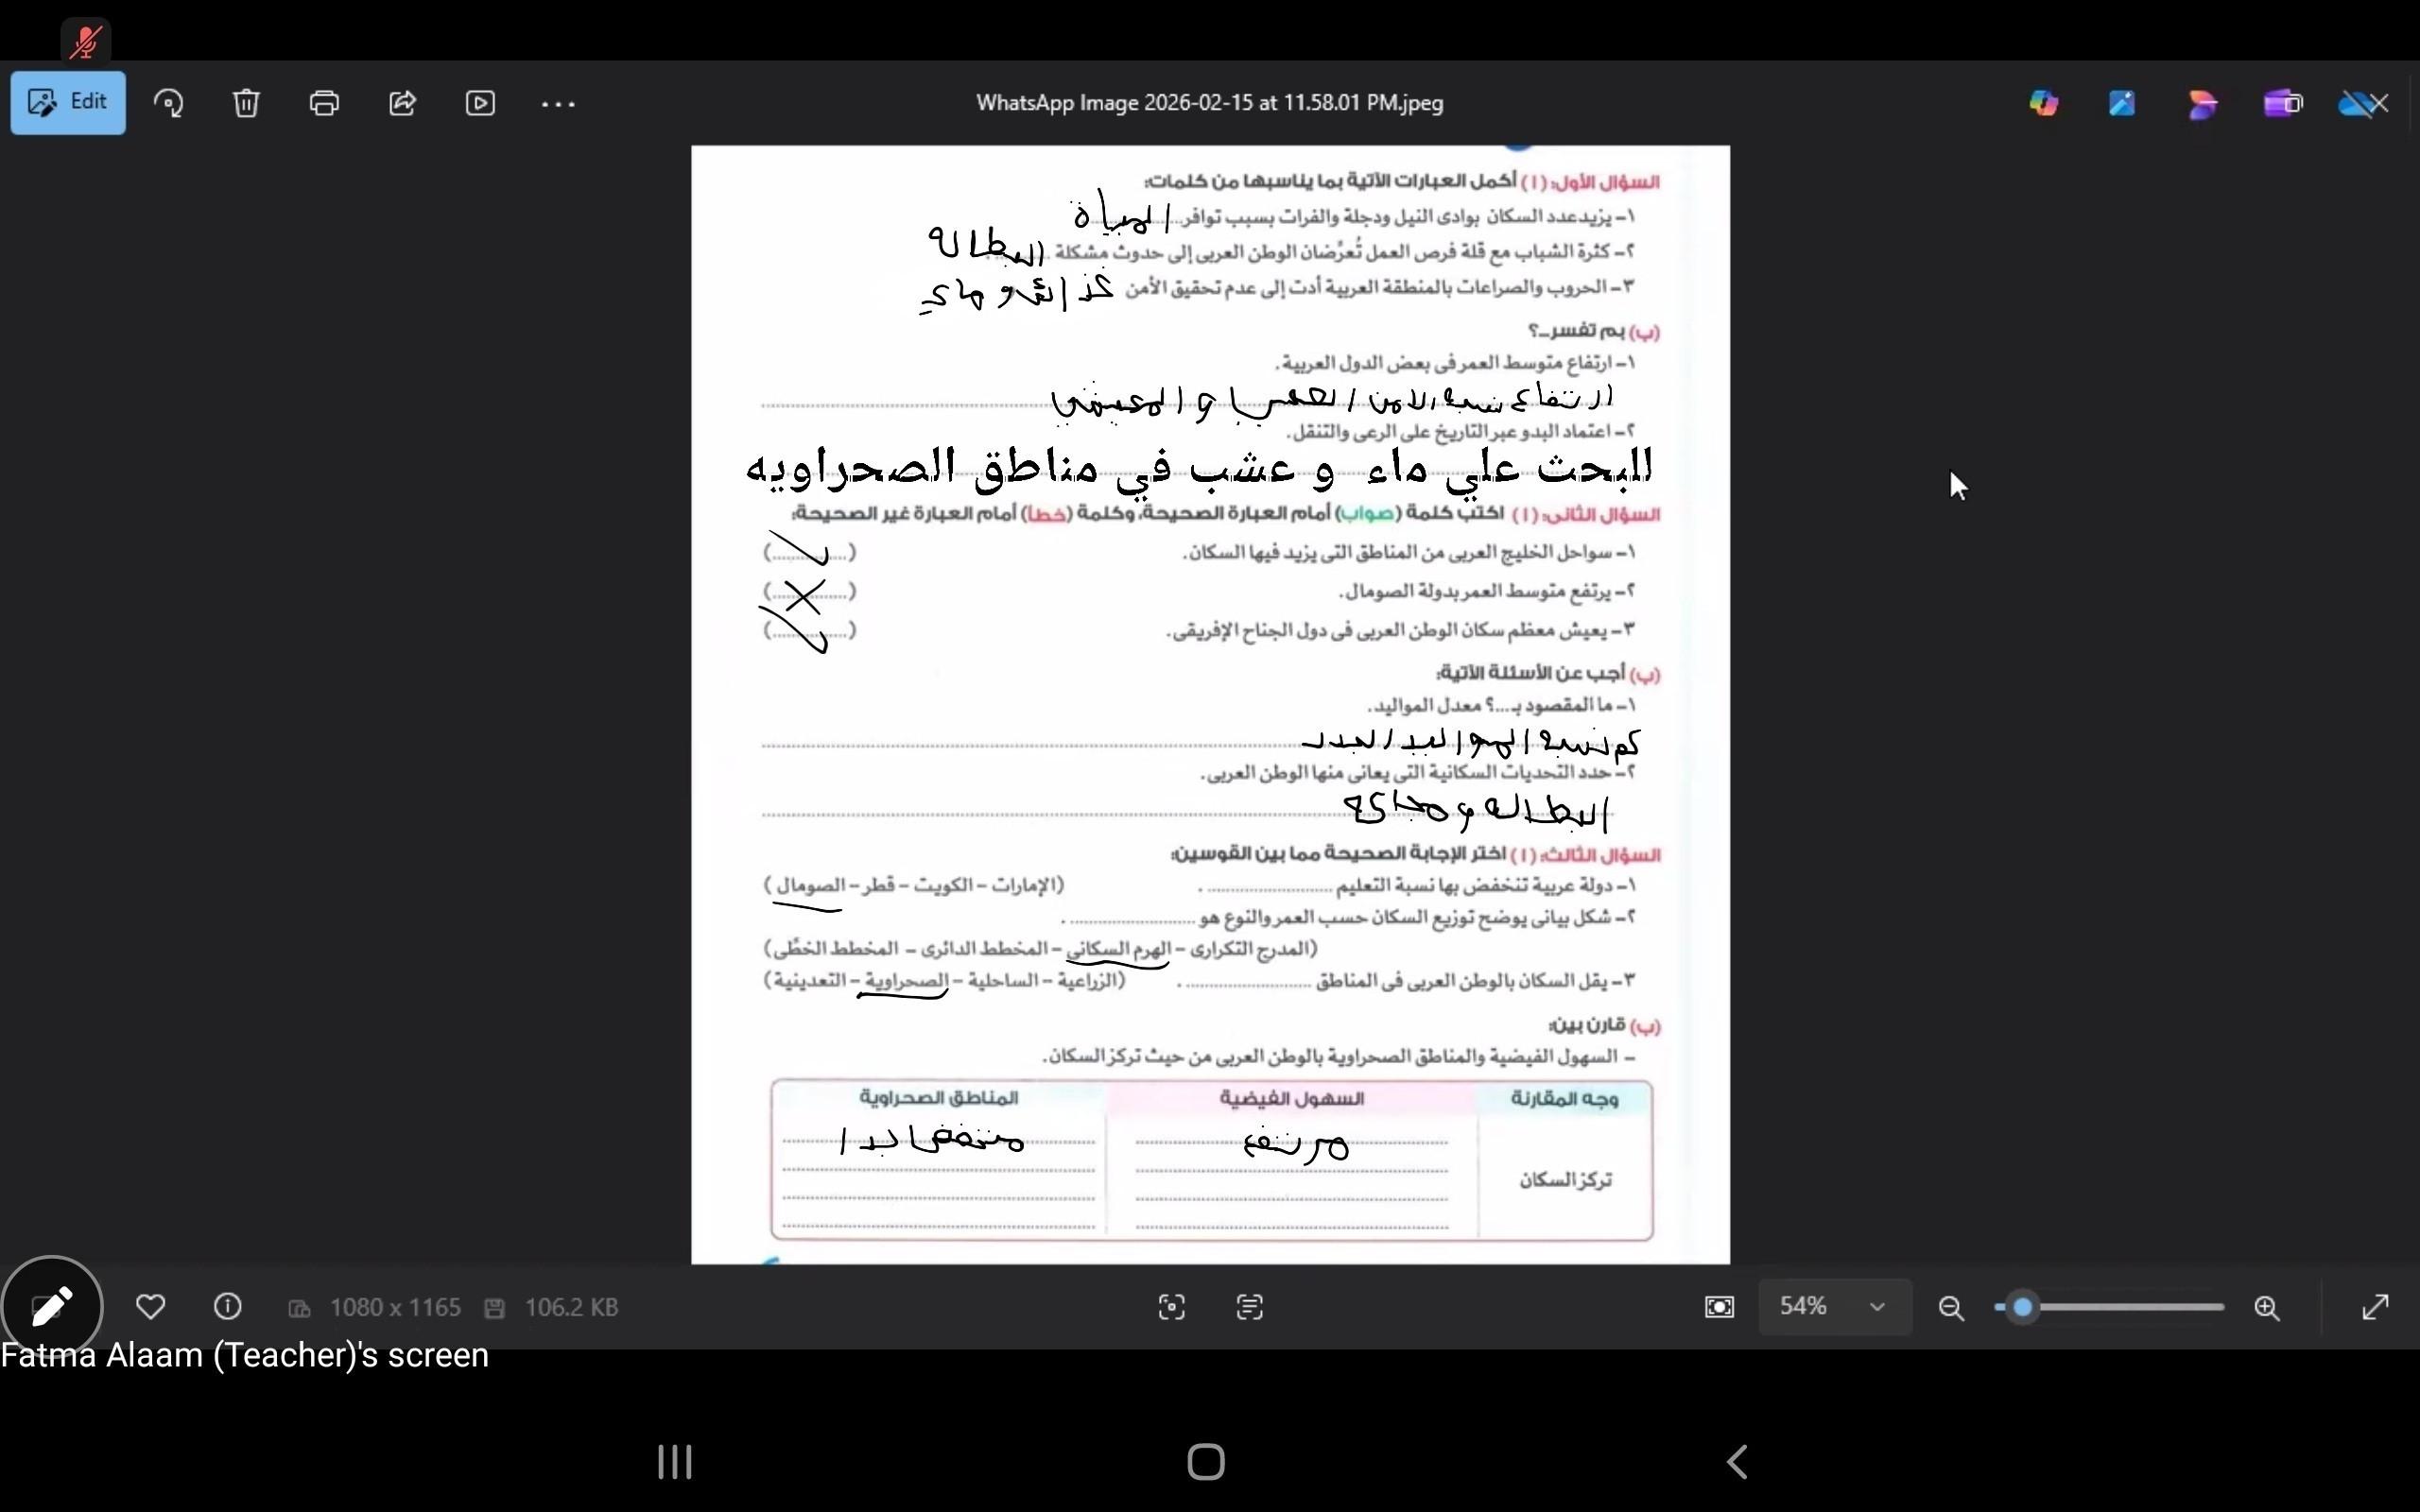 Edit
WhatsApp Image 2026-02-15 at 11.58.01 PM.jpeg
السؤال الأول: (١) أكمل العبارات الآتية بما يناسبها من كلمات:
١- يزيد عدد السكان بوادى النيل ودجلة والفرات بسبب توافر المياة
٢- كثرة الشباب مع قلة فرص العمل تُعرِّضان الوطن العربى إلى حدوث مشكلة البطاله
٣- الحروب والصراعات بالمنطقة العربية أدت إلى عدم تحقيق الأمن غذائي و مائي
(ب) بم تفسر...؟
١- ارتفاع متوسط العمر فى بعض الدول العربية.
ارتفاع نسبه الامن و المعيشي
٢- اعتماد البدو عبر التاريخ على الرعى والتنقل.
للبحث علي ماء و عشب في مناطق الصحراويه
السؤال الثانى: (١) اكتب كلمة (صواب) أمام العبارة الصحيحة، وكلمة (خطأ) أمام العبارة غير الصحيحة:
١- سواحل الخليج العربى من المناطق التى يزيد فيها السكان. (..............)
٢- يرتفع متوسط العمر بدولة الصومال. (..............)
٣- يعيش معظم سكان الوطن العربى فى دول الجناح الإفريقى. (..............)
(ب) أجب عن الأسئلة الآتية:
١- ما المقصود بـ...؟ معدل المواليد.
كم نسبه المواليد الجدد
٢- حدد التحديات السكانية التى يعانى منها الوطن العربى.
البطاله و
السؤال الثالث: (١) اختر الإجابة الصحيحة مما بين القوسين:
١- دولة عربية تنخفض بها نسبة التعليم .................... . (الإمارات – الكويت – قطر – الصومال)
٢- شكل بيانى يوضح توزيع السكان حسب العمر والنوع هو .................... .
(المدرج التكرارى – الهرم السكانى – المخطط الدائرى – المخطط الخطِّى)
٣- يقل السكان بالوطن العربى فى المناطق .................... . (الزراعية – الساحلية – الصحراوية – التعدينية)
(ب) قارن بين:
– السهول الفيضية والمناطق الصحراوية بالوطن العربى من حيث تركز السكان.
وجه المقارنة السهول الفيضية المناطق الصحراوية
مرتفع منخفض جدا
تركز السكان
1080 x 1165 106.2 KB 54%
Fatma Alaam (Teacher)'s screen